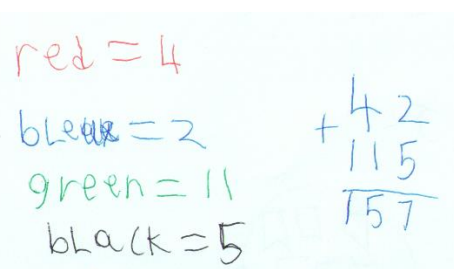 red = 4
= 2
green = 11
black = 5
42
+ 115
157